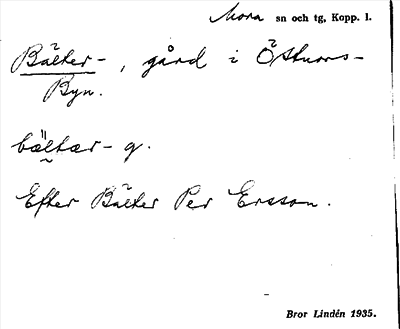 Mora sn och tg, Kopp. l.
Bälter-, gård i Östnors-
Byn.
bältær- g.
Efter Bälter Per Ersson.
Bror Lindén 1935.